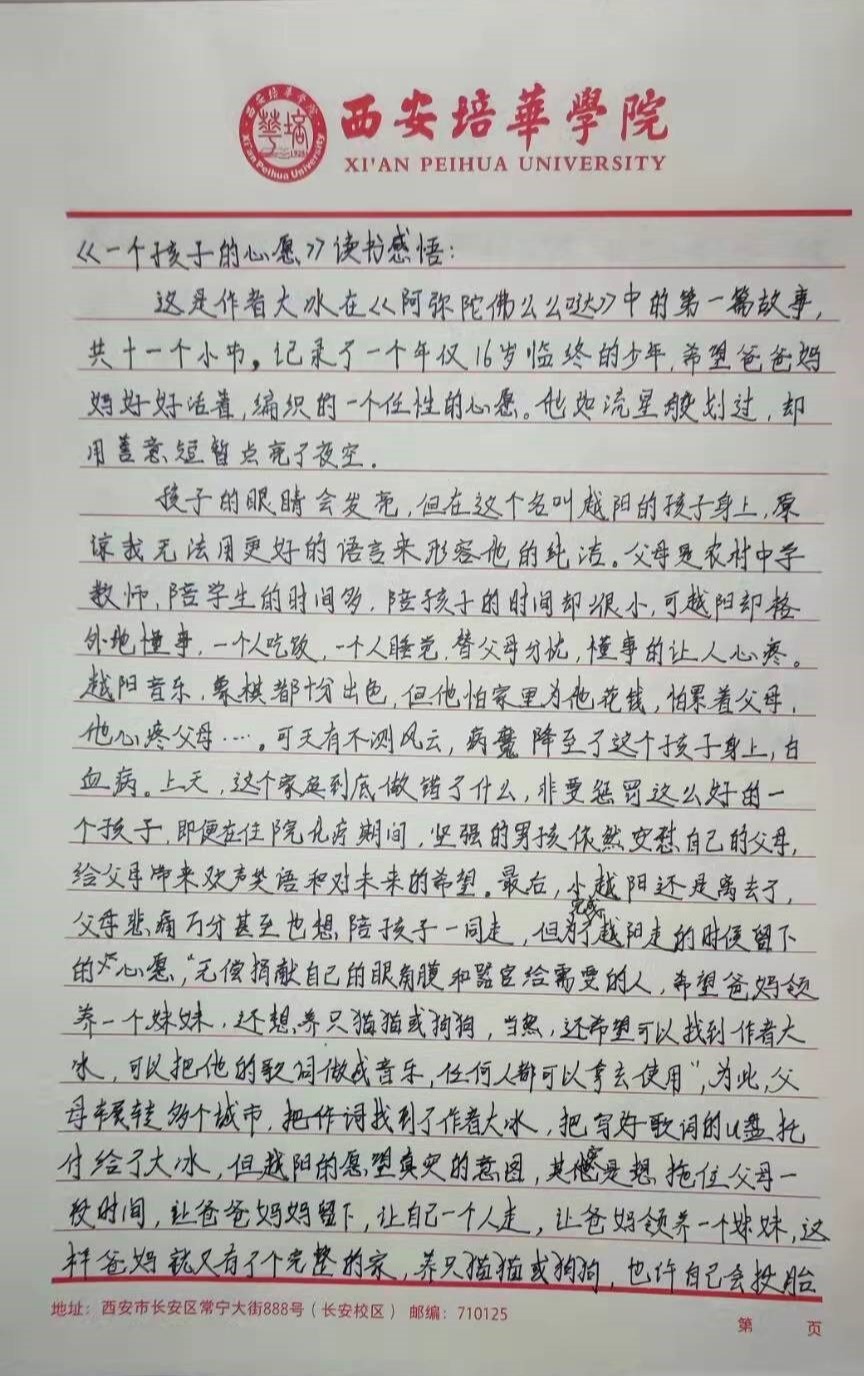 西安培華學院
XI'AN PEIHUA UNIVERSITY
西安培华学院
Xi'an Peihua University
1928
《一个孩子的心愿》读书感悟：
这是作者大冰在《阿弥陀佛么么哒》中的第一篇故事，
共十一个小节。记录了一个年仅16岁临终的少年，希望爸爸妈
妈好好活着，编织的一个任性的心愿。他如流星般划过，却
用善意短暂点亮了夜空．
孩子的眼睛会发亮，但在这个名叫越阳的孩子身上，原
谅我无法用更好的语言来形容他的纯洁。父母是农村中学
教师，陪学生的时间多，陪孩子的时间却很小，可越阳却格
外地懂事，一个人吃饭，一个人睡觉，替父母分忧，懂事的让人心疼。
越阳音乐、象棋都十分出色，但他怕家里为他花钱，怕累着父母，
他心疼父母……。可天有不测风云，病魔降至了这个孩子身上，白
血病。上天，这个家庭到底做错了什么，非要惩罚这么好的一
个孩子，即便在住院化疗期间，坚强的男孩依然安慰自己的父母，
给父母带来欢声笑语和对未来的希望。最后，小越阳还是离去了，
父母悲痛万分甚至也想陪孩子一同走，但为了完成越阳走的时候留下
的心愿，“无偿捐献自己的眼角膜和器官给需要的人，希望爸妈领
养一个妹妹，还想养只猫猫或狗狗，当然，还希望可以找到作者大
冰，可以把他的歌词做成音乐，任何人都可以拿去使用”，为此，父
母辗转多个城市，把作词找到了作者大冰，把写好歌词的U盘托
付给了大冰，但越阳的愿望真实的意图，其实是想拖住父母一
段时间，让爸爸妈妈留下，让自己一个人走，让爸妈领养一个妹妹，这
样爸妈就又有了个完整的家，养只猫猫或狗狗，也许自己会投胎
地址：西安市长安区常宁大街888号（长安校区） 邮编：710125
第 页